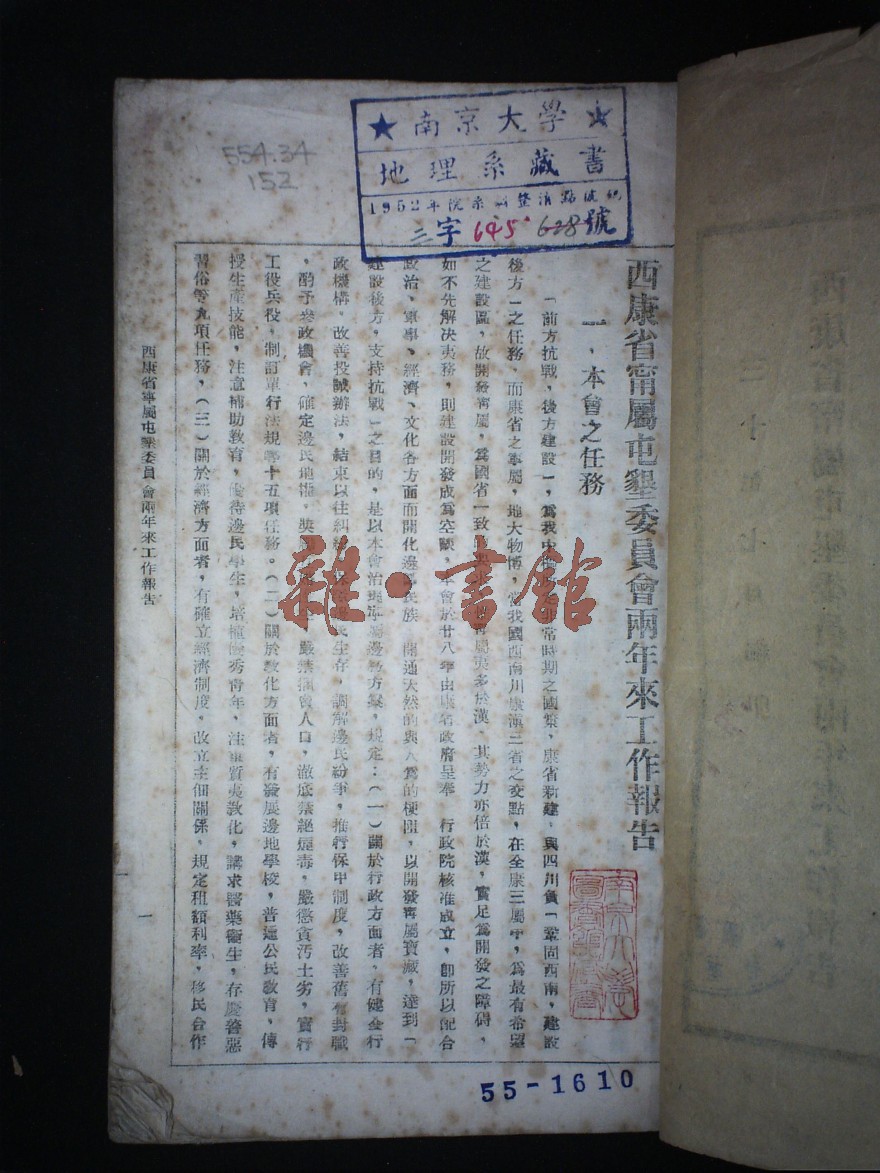 554.34
152
★南京大學★
地理系藏書
1952年院系調整清點後編
三字 645 628 號
西康省甯屬屯墾委員會兩年來工作報告
一，本會之任務
「前方抗戰，後方建設」，為我中國非常時期之國策，康省新建，與四川負「鞏固西南，建設
後方」之任務，而康省之寧屬，地大物博，當我國西南川康滇三省之交點，在全康三屬中，為最有希望
之建設區，故開發甯屬，為國省一致之要求，惟甯屬夷多於漢，其勢力亦倍於漢，實足為開發之障碍，
如不先解决夷務，則建設開發成為空談，本會於廿八年由康省政府呈奉　行政院核准成立，卽所以配合
政治、軍事、經濟、文化各方面而開化邊民族，開通天然的與人為的梗阻，以開發甯屬寶藏，達到「
建設後方，支持抗戰」之目的，是以本會治理寧屬邊務方案，規定：(一)關於行政方面者，有健全行
政機構，改善投誠辦法，結束以往糾紛，保護邊民生存，調解邊民紛爭，推行保甲制度，改善舊有封職
，酌予參政機會，確定邊民地權，獎，嚴禁擄人口，澈底禁絕烟毒，嚴懲貪污土劣，實行
工役兵役，制訂單行法規等十五項任務。(二)關於敎化方面者，有發展邊地學校，普通公民敎育，傳
授生產技能，注意補助敎育，優待邊民學生，培植優秀青年，注重質夷敎化，講求醫藥衞生，存廢善惡
習俗等九項任務，(三)關於經濟方面者，有確立經濟制度，改立主佃關係，規定租額利率，移民合作
西康省寧屬屯墾委員會兩年來工作報告
一
雜·書館
55-1610